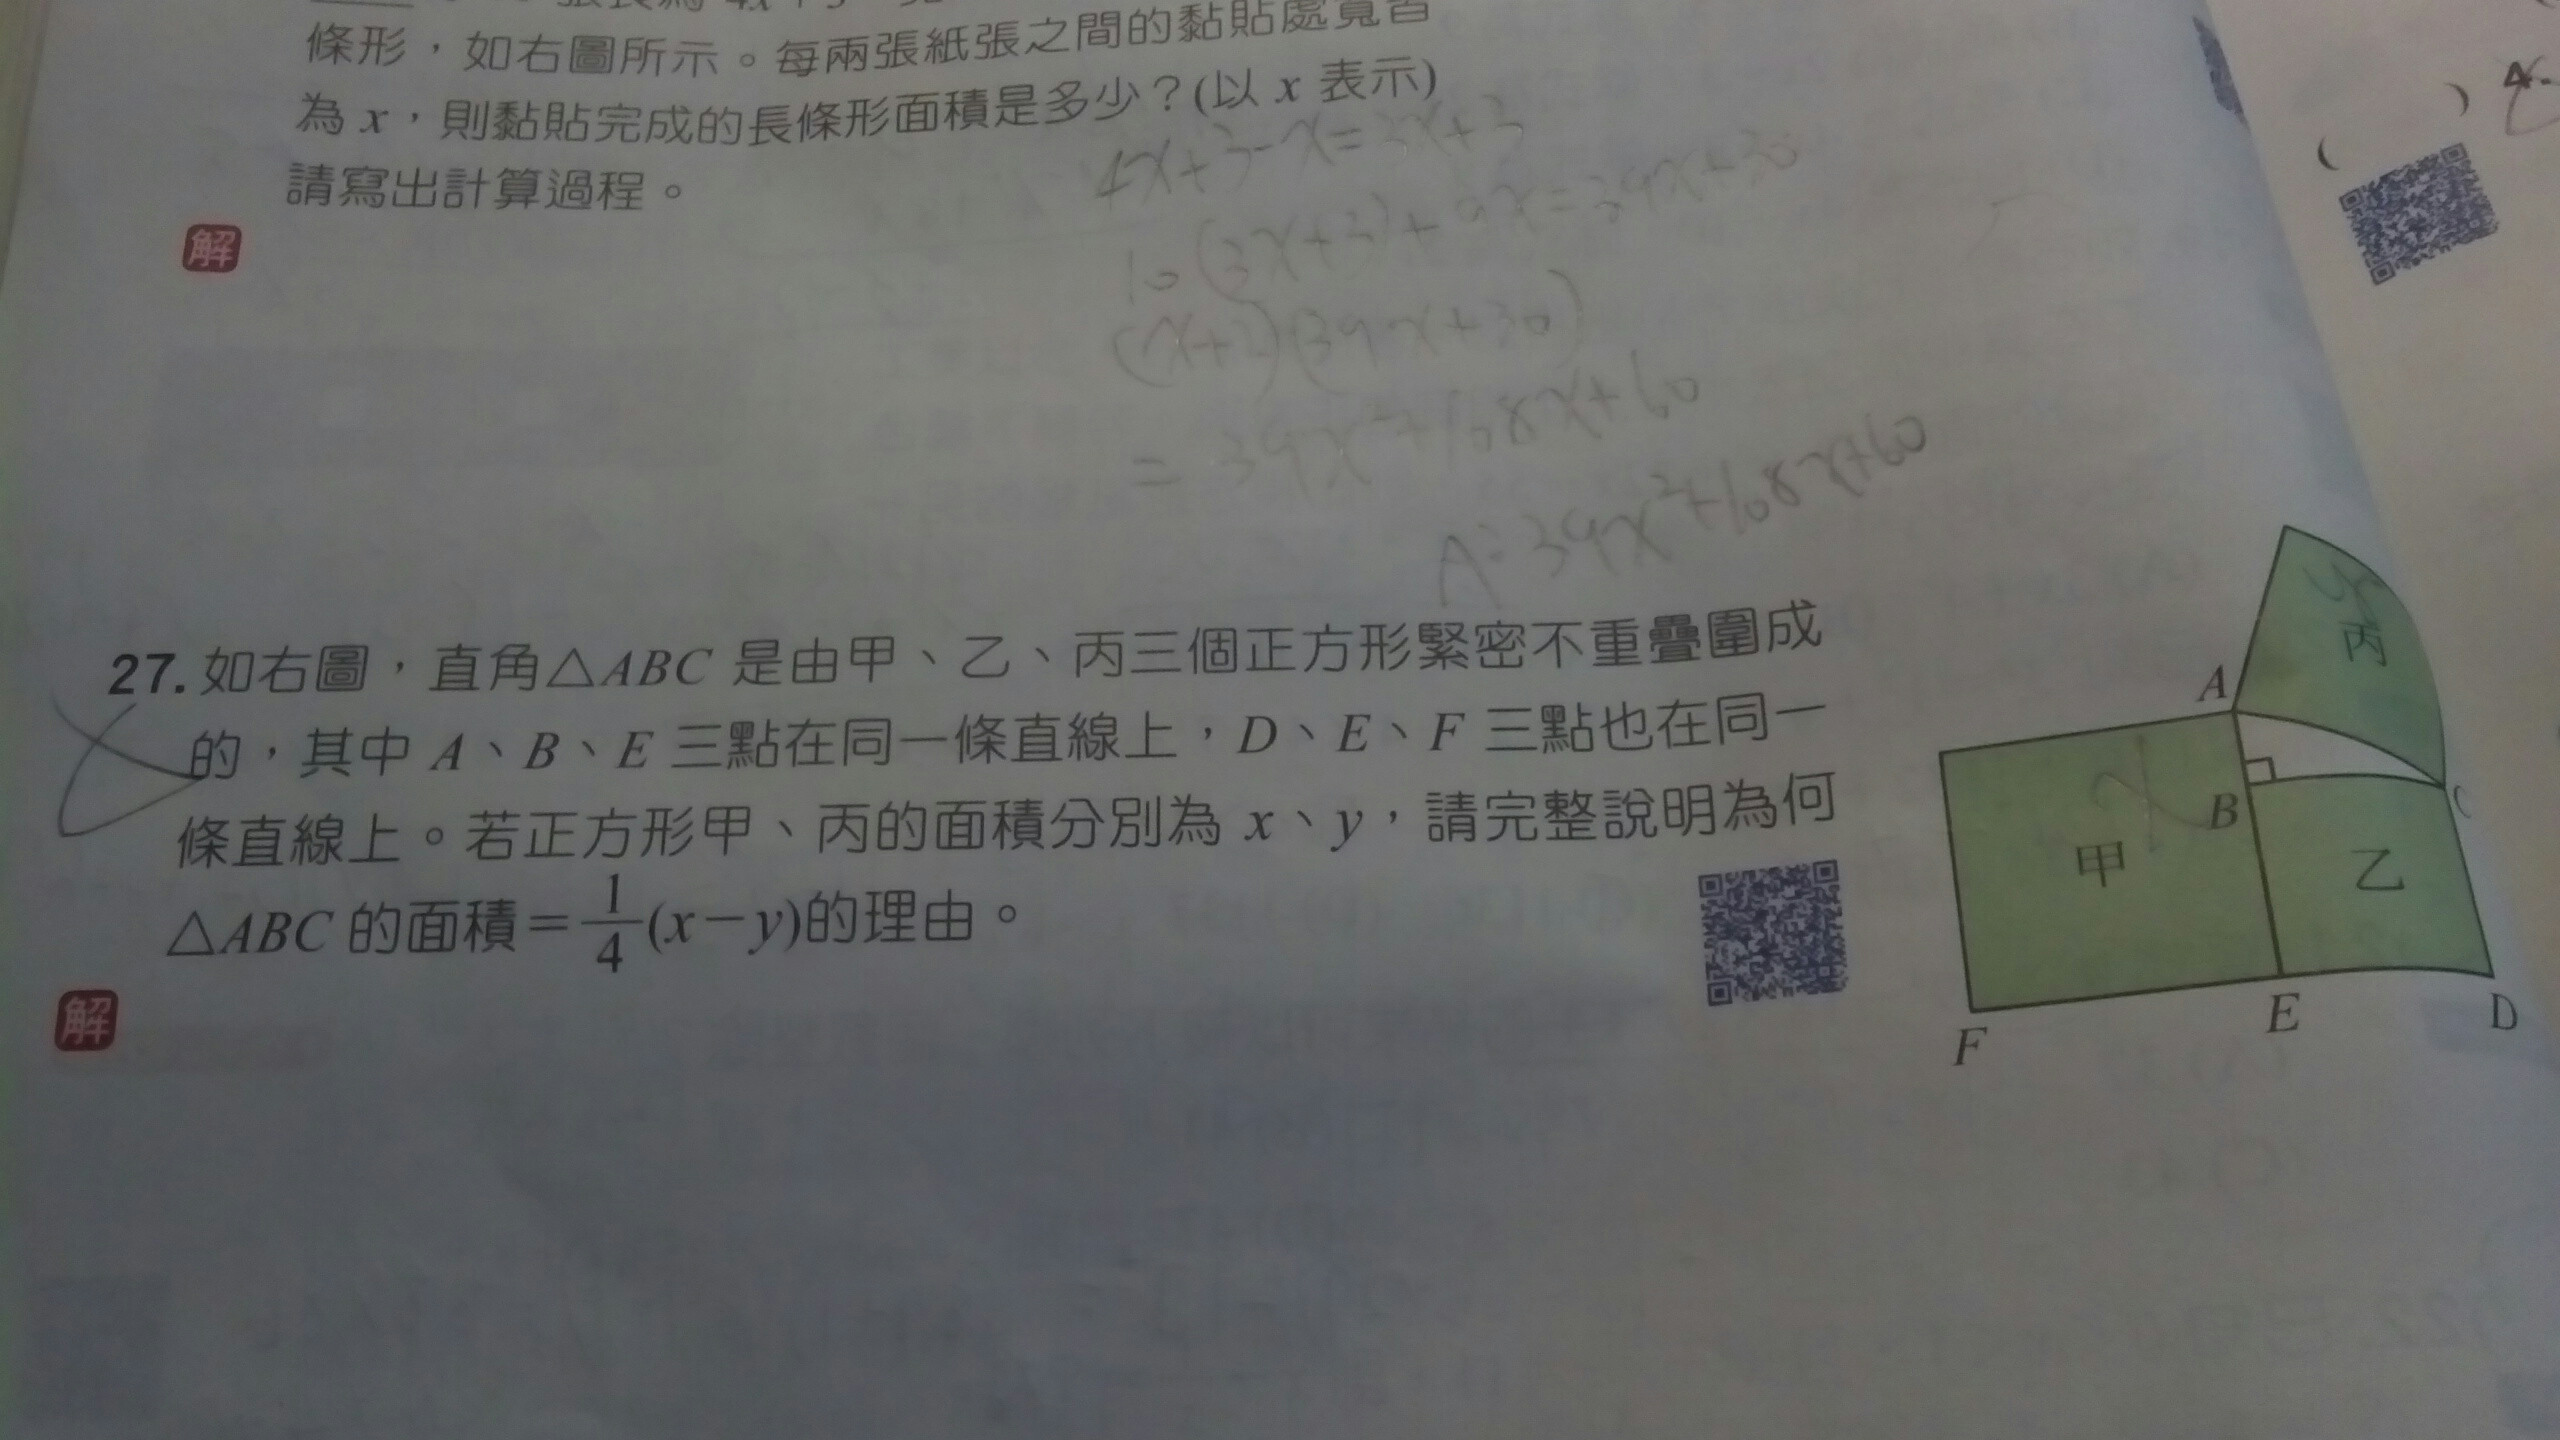 條形，如右圖所示。每兩張紙張之間的黏貼處寬皆
為 x，則黏貼完成的長條形面積是多少？(以 x 表示)
請寫出計算過程。
解
4x+3-x=3x+3
10(3x+3)+9x=39x+30
(x+2)(39x+30)
=39x²+108x+60
A:39x²+108x+60
27. 如右圖，直角△ABC 是由甲、乙、丙三個正方形緊密不重疊圍成
的，其中 A、B、E 三點在同一條直線上，D、E、F 三點也在同一
條直線上。若正方形甲、丙的面積分別為 x、y，請完整說明為何
△ABC 的面積＝1/4(x－y)的理由。
解
y
丙
A
x
B
C
甲
乙
F
E
D
( ) 4.
(